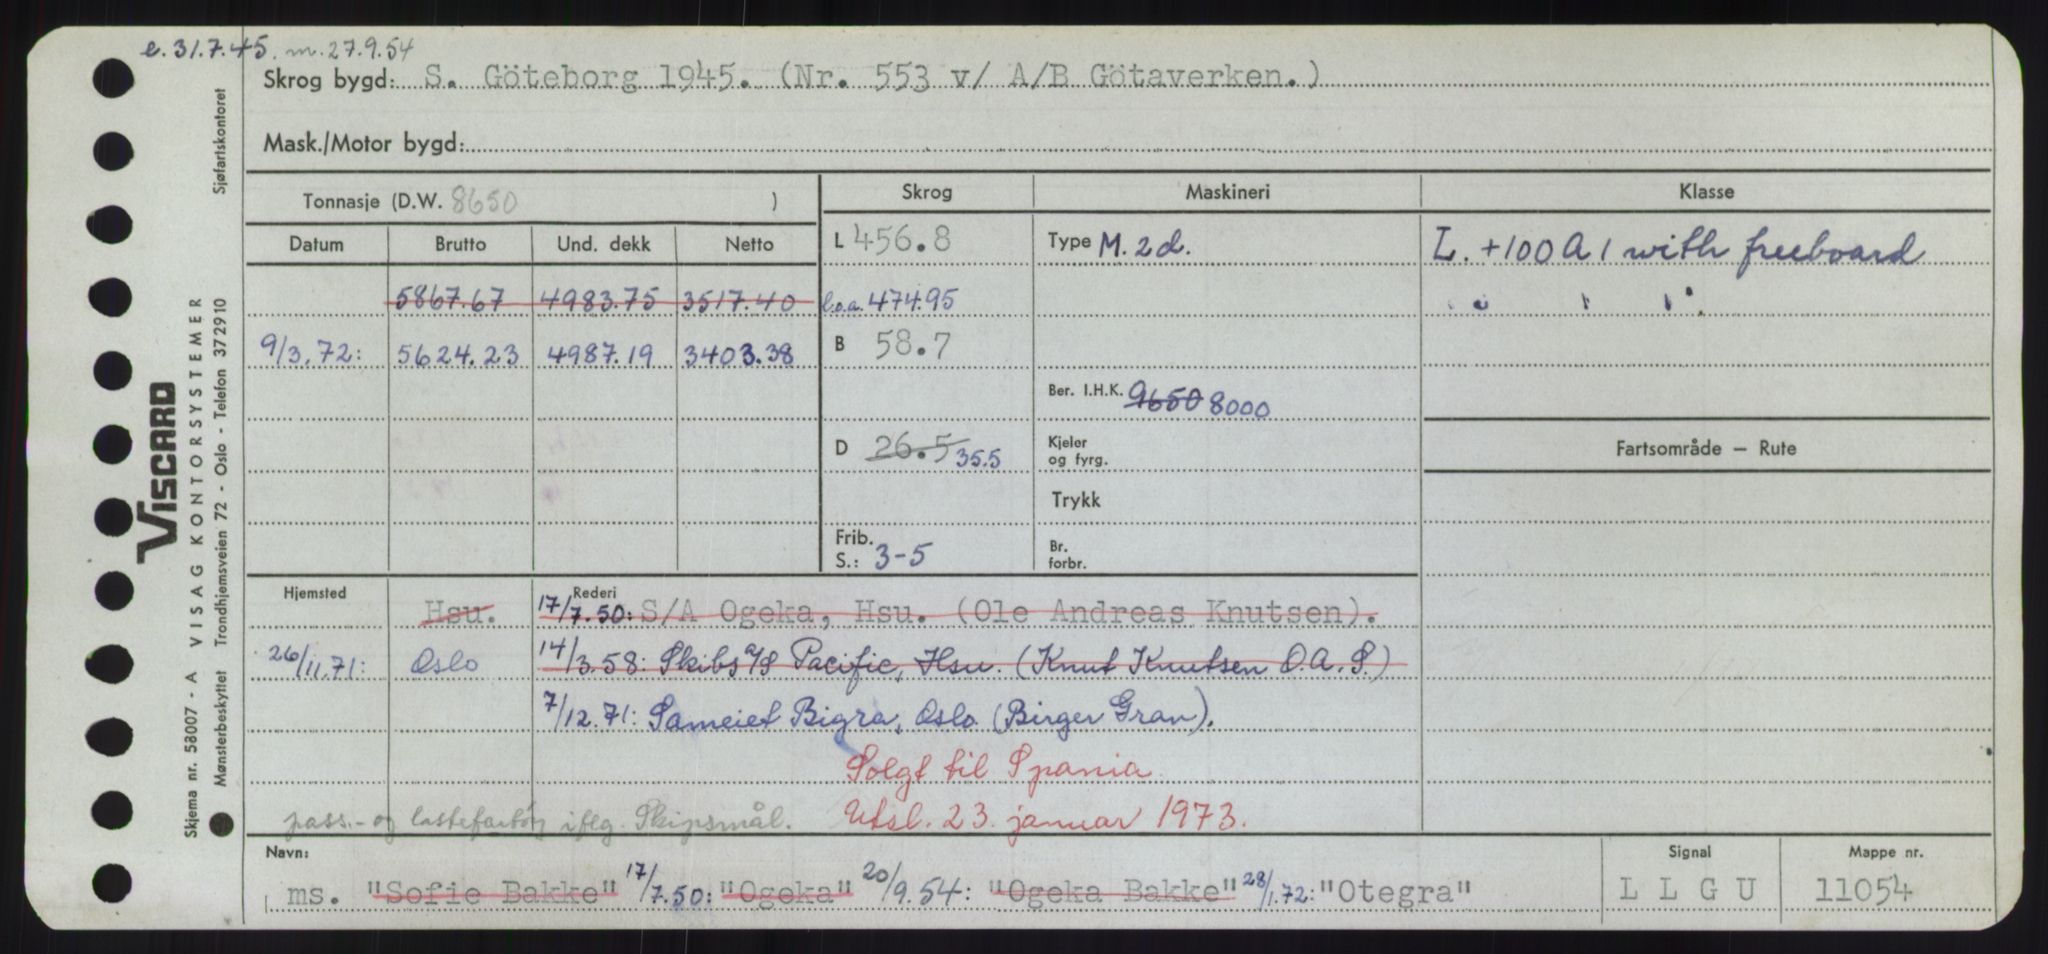 e. 31.7.45. m. 27.9.54
Skrog bygd: S. Göteborg 1945. (Nr. 553 v/ A/B Götaverken.)
Mask./Motor bygd:
Tonnasje (D.W. 8650 )
Skrog Maskineri Klasse
Datum Brutto Und. dekk Netto
L 456.8 Type M. 2d. L. +100A1 with freeboard
5867.67 4983.75 3517.40 l.o.a. 474.95
9/3.72: 5624.23 4987.19 3403.38 B 58.7
Ber. I.H.K. 9650 8000
D 26.5 35.5 Kjeler og fyrg. Fartsområde — Rute
Trykk
Frib. S.: 3-5 Br. forbr.
Hjemsted Rederi
Hsu. 17/7.50: S/A Ogeka, Hsu. (Ole Andreas Knutsen).
26/11.71: Oslo 14/3.58: Skibs a/s Pacific, Hsu. (Knut Knutsen O.A.S.)
7/12.71: Sameiet Bigra, Oslo (Birger Gran).
Solgt til Spania
pass.- og lastefartøy iflg. Skipsmål. Utsl. 23. januar 1973.
Navn: Signal Mappe nr.
ms. "Sofie Bakke" 17/7.50: "Ogeka" 20/9.54: "Ogeka Bakke" 28/1.72: "Otegra" L L G U 11054
Skjema nr. 58007 - A VISAG KONTORSYSTEMER
VISCARD
Mønsterbeskyttet Trondhjemsveien 72 - Oslo - Telefon 372910 Sjøfartskontoret